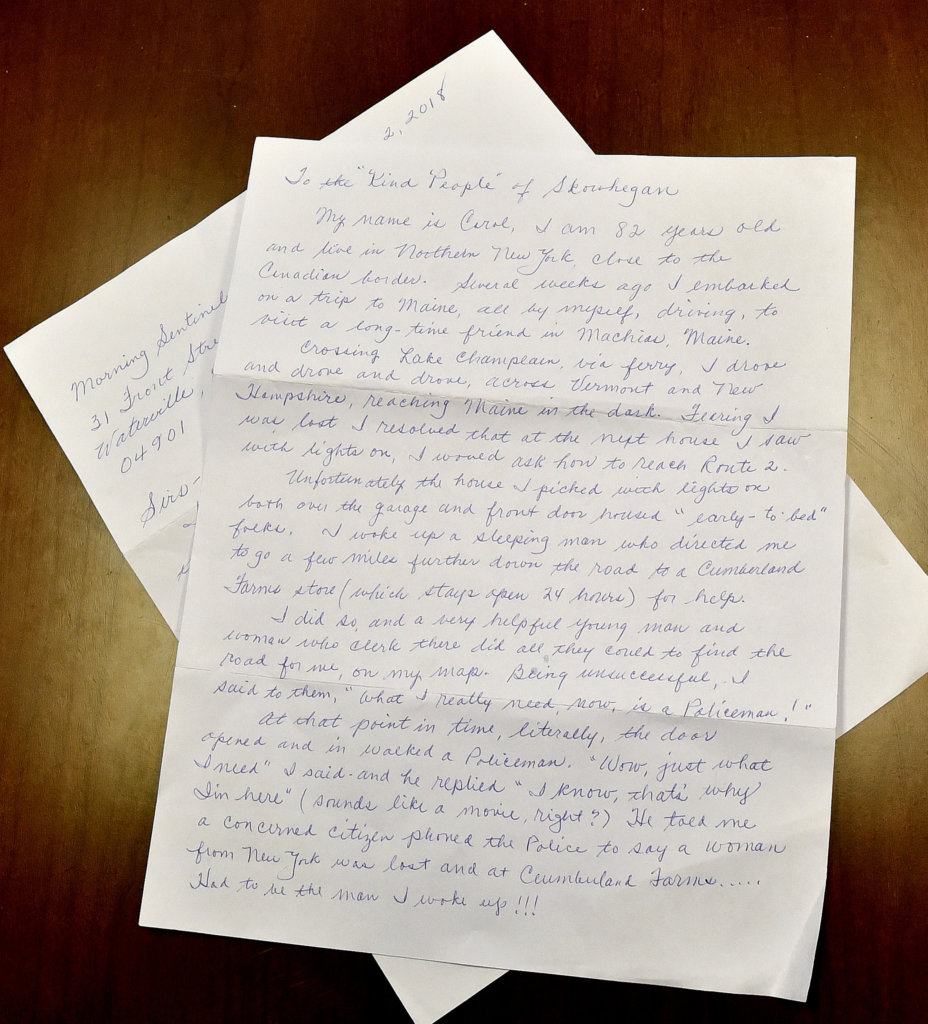 2, 2018
Morning Sentinel
31 Front Stre
Waterville,
04901
Sirs-
To the "Kind People" of Skowhegan
My name is Carol, I am 82 years old
and live in Northern New York, close to the
Canadian border. Several weeks ago I embarked
on a trip to Maine, all by myself, driving, to
visit a long-time friend in Machias, Maine.
Crossing Lake Champlain, via ferry, I drove
and drove and drove, across Vermont and New
Hampshire, reaching Maine in the dark. Feering I
was lost I resolved that at the next house I saw
with lights on, I would ask how to reach Route 2.
Unfortunately the house I picked with lights on
both over the garage and front door housed "early-to-bed"
folks. I woke up a sleeping man who directed me
to go a few miles further down the road to a Cumberland
Farms store (which stays open 24 hours) for help.
I did so, and a very helpful young man and
woman who clerk there did all they could to find the
road for me, on my map. Being unsuccessful, I
said to them, "What I really need, now, is a Policeman!"
At that point in time, literally, the door
opened and in walked a Policeman. "Wow, just what
I need" I said - and he replied "I know, that's why
I'm here" (sounds like a movie, right?) He told me
a concerned citizen phoned the Police to say a woman
from New York was lost and at Cumberland Farms.....
Had to be the man I woke up!!!